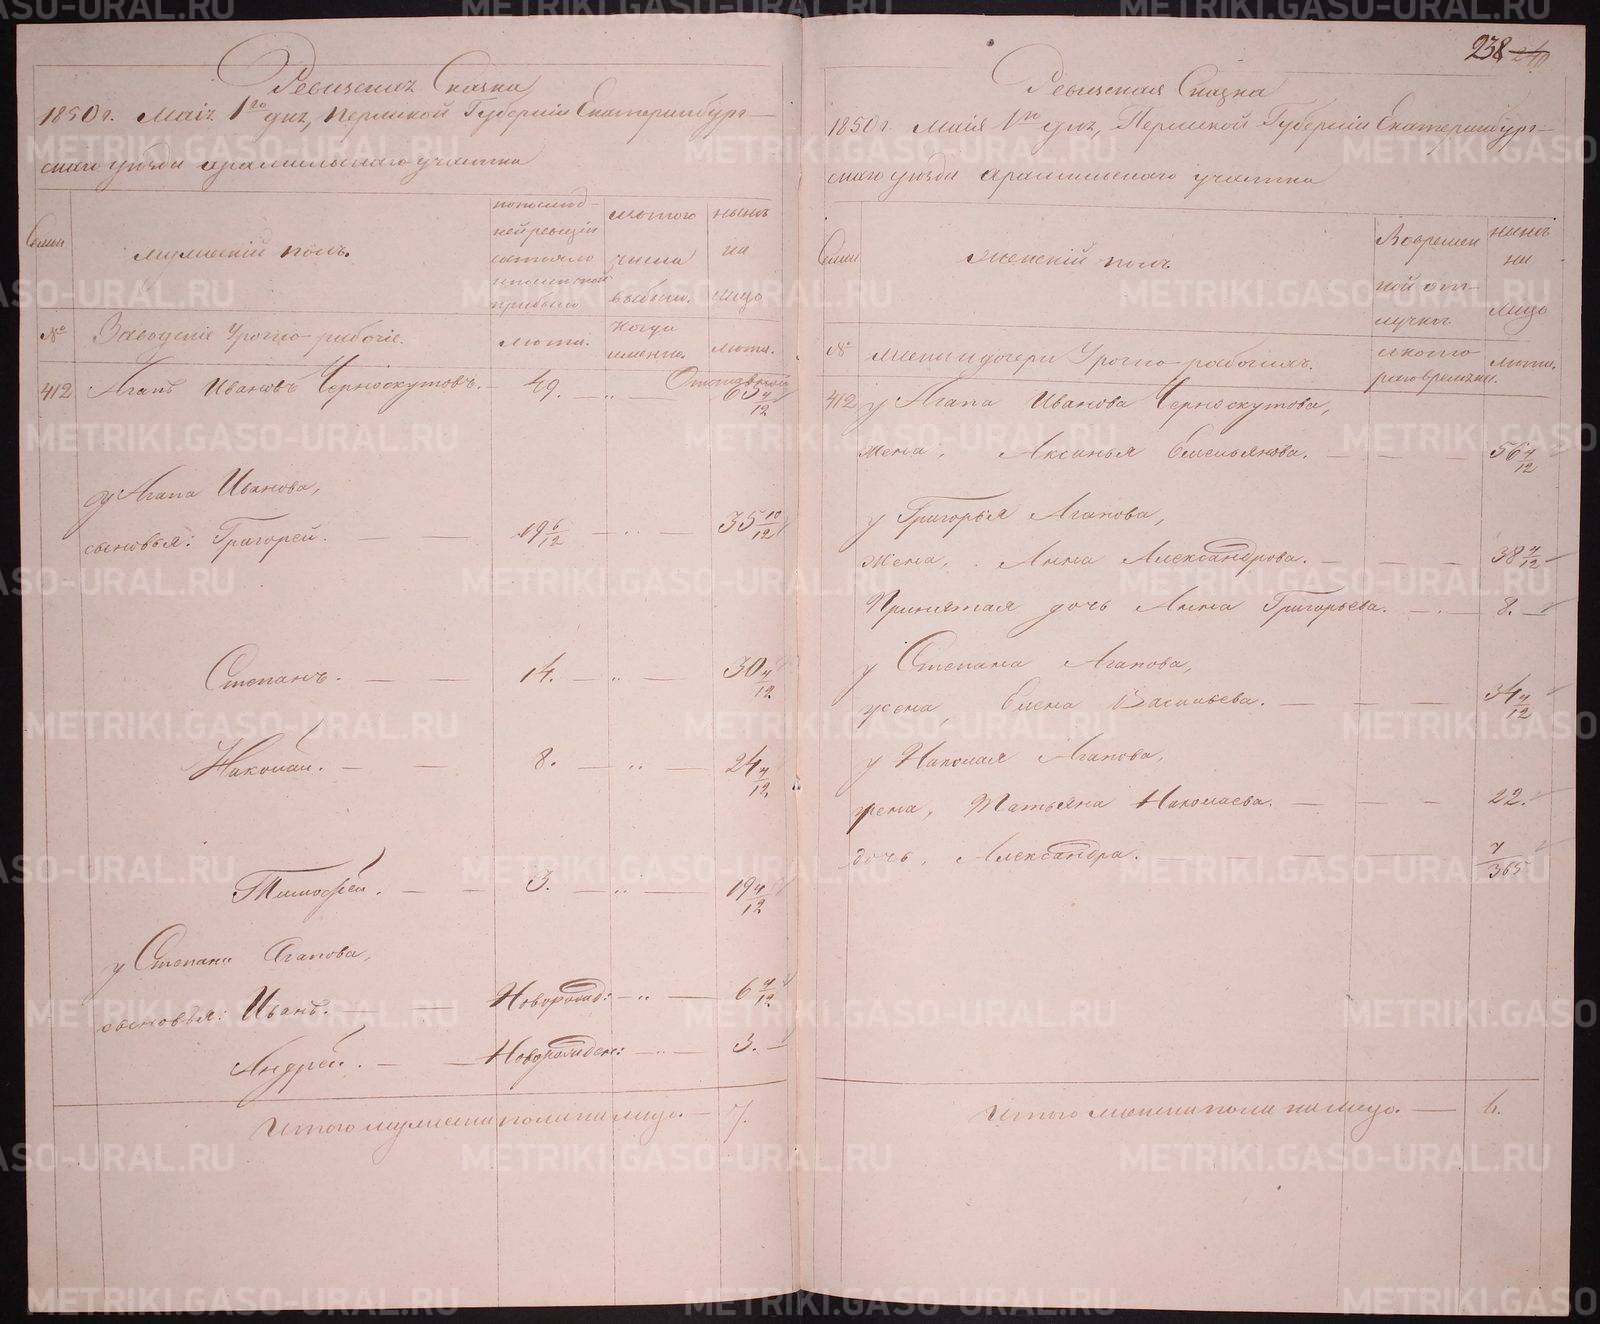 Ревизская Сказка
1850 г. Маія 1го дня, Пермской Губерніи Екатеринбург-
скаго уезда Арамильскаго участка
Семьи
мужескій полъ.
по послед-
ней ревизіи
состояло
и после оной
прибыло
изъ того
числа
выбыло.
ныне
на
лицо
№
Заводскіе Урочно-рабочіе.
лета.
когда
именно.
лета.
412
Агапъ Ивановъ Черноскутовъ. — 49. — „ — Отставной
65 4/12
у Агапа Иванова,
сыновья: Григорей. — — 19 6/12 — „ — 35 10/12
Степанъ. — — 14. — „ — 30 4/12
Николай. — — 8. — „ — 24 4/12
Тимофей. — — 3. — „ — 19 4/12
у Степана Агапова,
сыновья: Иванъ. — — Новорожд: — „ — 6 4/12
Андрей. — — Новорожден: — „ — 3. —
Итого мужеска пола на лицо. — 7.
238 240
Ревизская Сказка
1850 г. Маія 1го дня, Пермской Губерніи Екатеринбург-
скаго уезда Арамильскаго участка
Семьи
женскій полъ.
Во времен
ной от-
лучке
ныне
на
лицо
№
жены и дочери Урочно-рабочихъ.
съ кото
раго времени.
лета.
412
у Агапа Иванова Черноскутова,
жена, Аксинья Емельянова. — — — 56 4/12
у Григорья Агапова,
жена, Анна Александрова. — — — 38 4/12
Принятая дочь Анна Григорьева. — — 8. —
у Степана Агапова,
жена, Елена Васильева. — — — 34 4/12
у Николая Агапова,
жена, Татьяна Николаева. — — — 22.
дочь, Александра. — — — 7/365
Итого женска пола на лицо. — 6.
METRIKI.GASO-URAL.RU